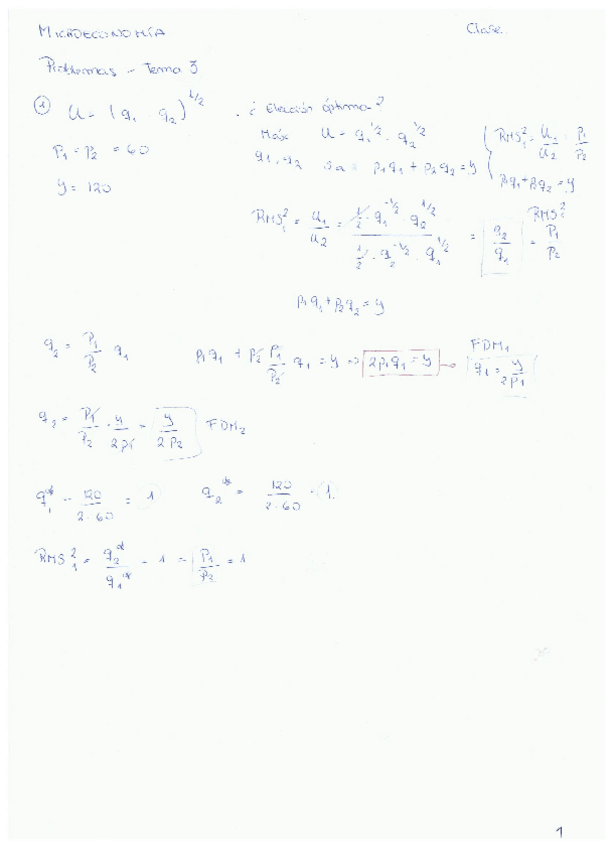 MICROECONOMÍA Clase.
Problemas - Tema 3
① U = (q₁ · q₂)^1/2 · ¿Elección óptima?
P₁ = P₂ = 60 Máx U = q₁^1/2 · q₂^1/2 { RMS₁² = U₁/U₂ = P₁/P₂
y = 120 q₁, q₂ s.a: p₁q₁ + p₂q₂ = y { P₁q₁ + P₂q₂ = y
RMS₁² = U₁/U₂ = (1/2 · q₁^-1/2 · q₂^1/2)/(1/2 · q₂^-1/2 · q₁^1/2) = q₂/q₁ RMS₁² = P₁/P₂
p₁q₁ + p₂q₂ = y
q₂ = P₁/P₂ q₁ p₁q₁ + P₂ P₁/P₂ q₁ = y ⇒ 2p₁q₁ = y → FDM₁ q₁ = y/2p₁
q₂ = P₁/P₂ · y/2p₁ = y/2p₂ FDM₂
q₁* = 120/2·60 = 1 q₂* = 120/2·60 = 1
RMS₁² = q₂*/q₁* = 1 = P₁/P₂ = 1
1